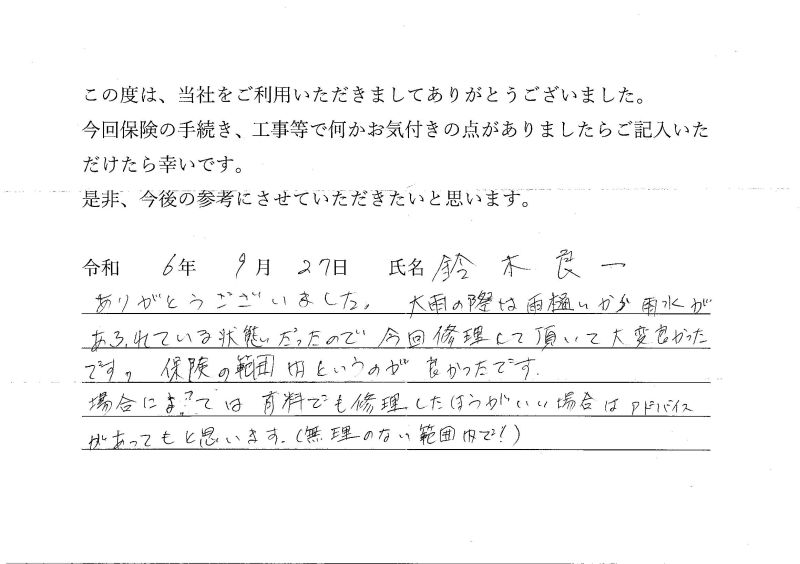 この度は、当社をご利用いただきましてありがとうございました。
今回保険の手続き、工事等で何かお気付きの点がありましたらご記入いた
だけたら幸いです。
是非、今後の参考にさせていただきたいと思います。
令和 6年 9月 27日 氏名 鈴木良一
ありがとうございました。 大雨の際は雨樋いから雨水が
あふれている状態だったので今回修理して頂いて大変良かった
です。 保険の範囲内というのが良かったです.
場合によっては有料でも修理したほうがいい場合はアドバイス
があってもと思います.(無理のない範囲内で!)